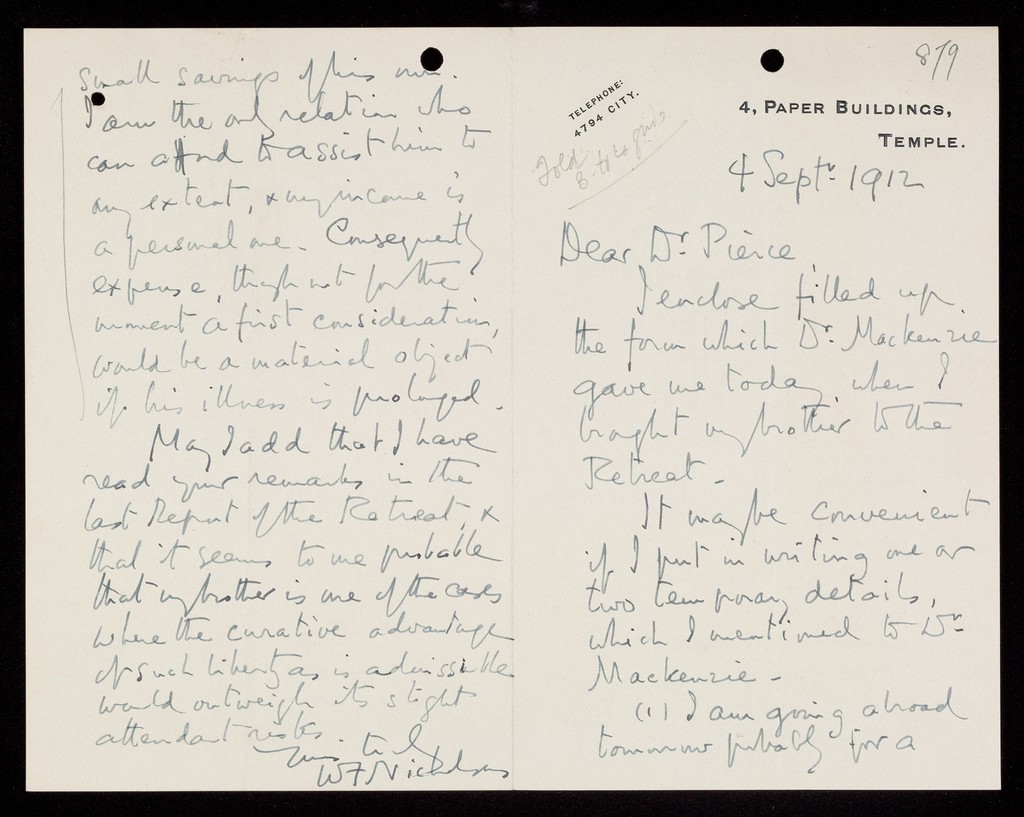 small savings of his own.
I am the only relation who
can afford to assist him to
any extent, & my income is
a personal one. Consequently
expense, though not for the
moment a first consideration,
would be a material object
if his illness is prolonged.
May I add that I have
read your remarks in the
last Report of the Retreat, &
that it seems to me probable
that my brother is one of the cases
where the curative advantage
of such liberty as is admissible
would outweigh its slight
attendant risks.
Yours truly
W F Nicholson
879
TELEPHONE:
4794 CITY.
4, PAPER BUILDINGS,
TEMPLE.
Told
4 Septr. 1912
Dear Dr. Pierce,
I enclose filled up
the form which Dr. Mackenzie
gave me today when I
brought my brother to the
Retreat.
It may be convenient
if I put in writing one or
two temporary details,
which I mentioned to Dr.
Mackenzie -
(1) I am going abroad
tomorrow probably for a